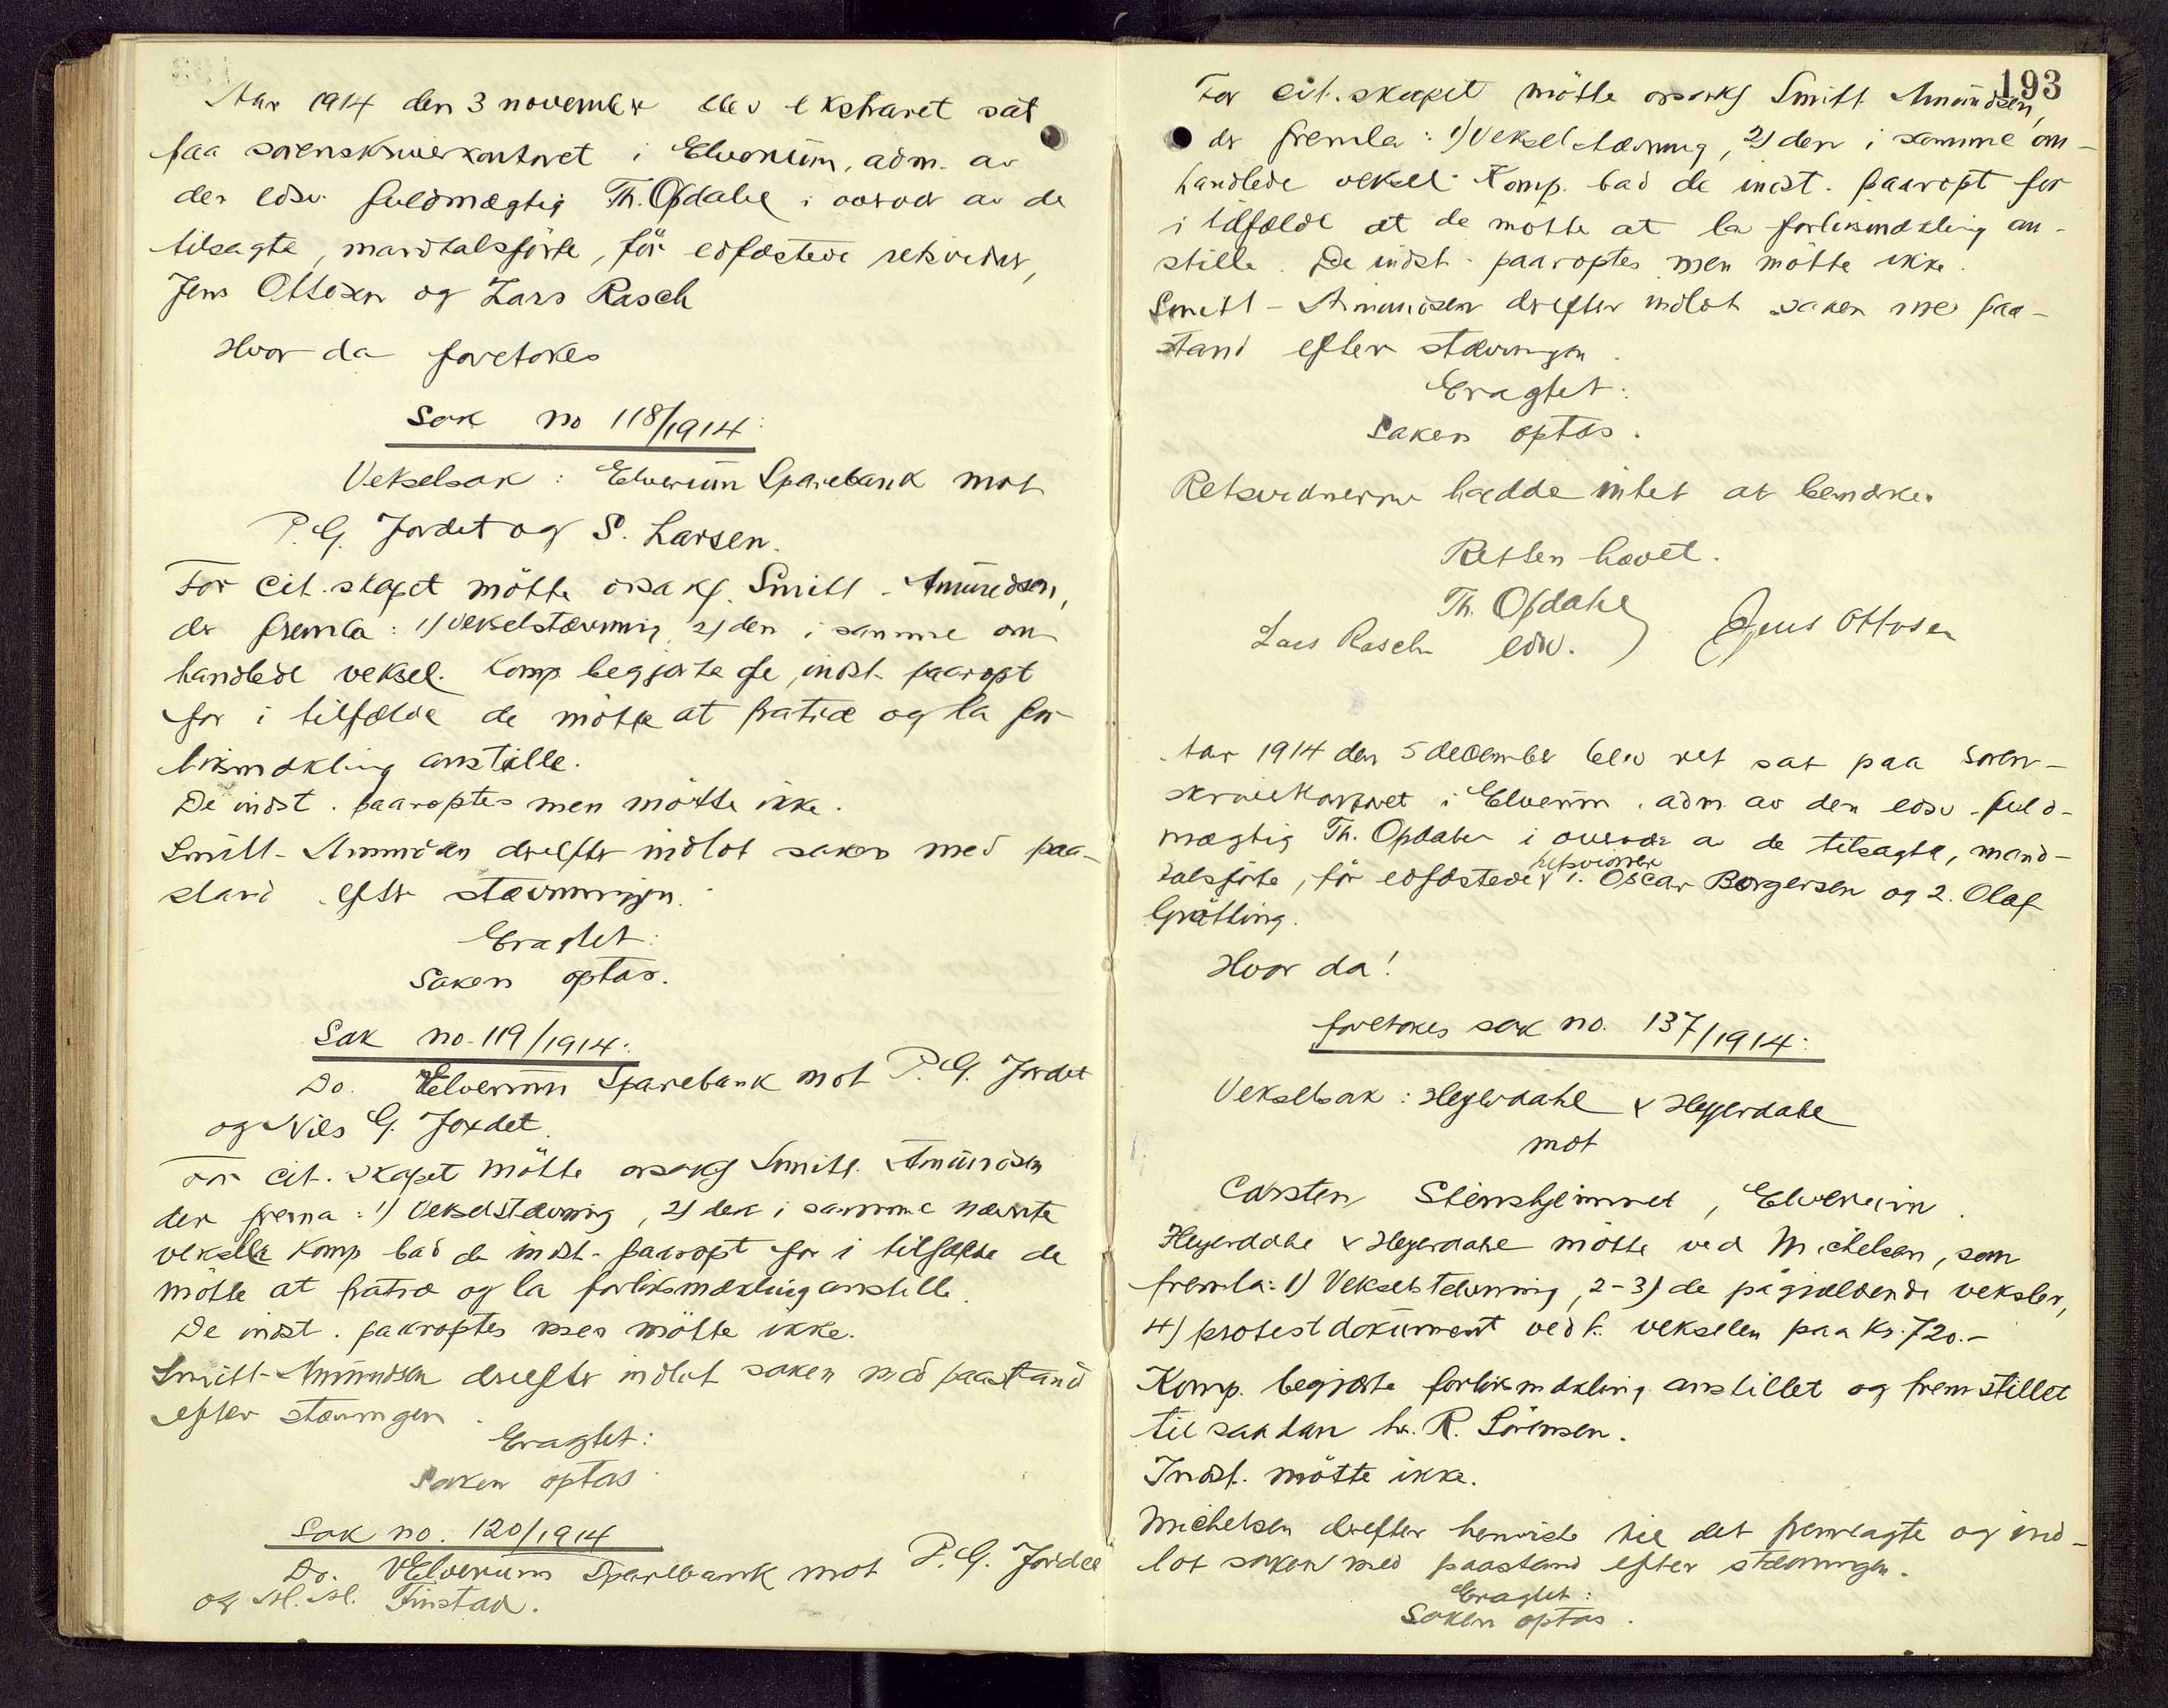 Aar 1914 den 3 november blev ekstraret sat
paa sorenskriverkontoret i Elverum, adm. av
den edsv. fuldmægtig Th. Opdahl i overvær av de
tilsagte, mandtalsførte, för edfæstede retsvidner,
Jens Ottosen og Lars Rasch
Hvor da foretokes
Sak no 118/1914:
Vekselsak: Elverum Sparebank mot
P. G. Jordet og S. Larsen.
For cit.skapet mötte orsakf. Smitt-Amundsen,
der fremla: 1) vekselstævning, 2) den i samme om
handlede veksel. Komp. begjærte de indst. paaropt
for i tilfælde de mötte at fratræ og la for
liksmækling anstille.
De indst. paaroptes men mötte ikke.
Smitt-Amundsen derefter indlot saken med paa-
stand efter stævningen.
Eragtet:
Saken optas.
Sak no. 119/1914:
Do. Elverum Sparebank mot P. G. Jordet
og Nils G. Jordet.
For cit.skapet mötte orsakf Smitt-Amundsen
der fremla: 1) Vekselstævning, 2) den i samme nævnte
veksel. Komp bad de indst. paaropt for i tilfælde de
mötte at fratræ og la forliksmækling anstille.
De indst. paaroptes men mötte ikke.
Smitt-Amundsen derefter indlot saken med paastand
efter stævningen.
Eragtet:
Saken optas.
Sak no. 120/1914
Do. Elverum Sparebank mot P. G. Jordet
og M. M. Finstad.
193
For cit.skapet mötte orsakf Smitt Amundsen,
der fremla: 1) Vekselstævning, 2) den i samme om-
handlede veksel. Komp. bad de indst. paaropt for
i tilfælde at de mötte at la forliksmækling an-
stille. De indst. paaroptes men mötte ikke.
Smitt-Amundsen derefter indlot saken med paa-
stand efter stævningen.
Eragtet:
Saken optas.
Retsvidnerne hadde intet at bemærke.
Retten hævet.
Th. Opdahl
Lars Rasch edsv. Jens Ottosen
Aar 1914 den 5 december blev ret sat paa soren-
skriverkontoret i Elverum, adm. av den edsv. fuld-
mægtig Th. Opdahl i overvær av de tilsagte, mand-
talsførte, för edfæstede retsvidner 1. Oscar Borgersen og 2. Olaf
Grötting.
Hvor da!
foretokes sak no. 137/1914:
Vekselsak: Heyerdahl & Heyerdahl
mot
Carsten Stenshjemmet, Elverum.
Heyerdahl & Heyerdahl mötte ved Michelsen, som
fremla: 1) Vekselstævning, 2-3) de pågjældende veksler,
4) protestdokument vedk. vekselen paa Kr. 720.-
Komp. begjærte forliksmækling anstillet og fremstillet
til saadan hr. R. Sörensen.
Indst. mötte ikke.
Michelsen derefter henviste til det fremlagte og ind-
lot saken med paastand efter stævningen.
Eragtet:
Saken optas.